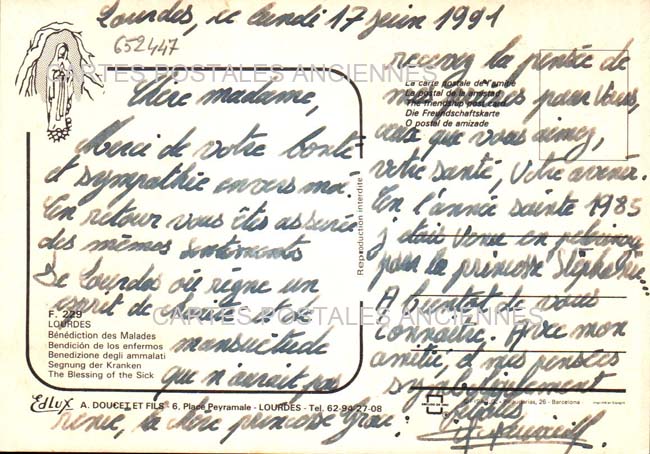 Lourdes, ce lundi 17 juin 1991
652447
CARTES POSTALES ANCIENNES
Chère madame,
Merci de votre bonté
et sympathie envers moi.
En retour vous êtes assurée
des mêmes sentiments
De Lourdes où règne un
esprit de et de
mansuétude
que n'aurait pas
renié, la Mère princesse Grace.
F. 229
LOURDES
Bénédiction des Malades
Bendición de los enfermos
Benedizione degli ammalati
Segnung der Kranken
The Blessing of the Sick
Edlux A. DOUCET ET FILS - 6, Place Peyramale - LOURDES - Tel. 62-94-27-08
Reproduction interdite
La carte postale de l'amitié
La postal de la amistad
The friendship post card
Die Freundschaftskarte
O postal de amizade
recevez la pensée de
mes pour vous,
ceux que vous aimez,
votre santé, votre avenir.
En l'année sainte 1985
j'étais venu en
pour la princesse Stéphanie.
A bientot de vous
connaître. Avec mon
amitié, et mes pensées
CARTES POSTALES ANCIENNES
26 - Barcelona